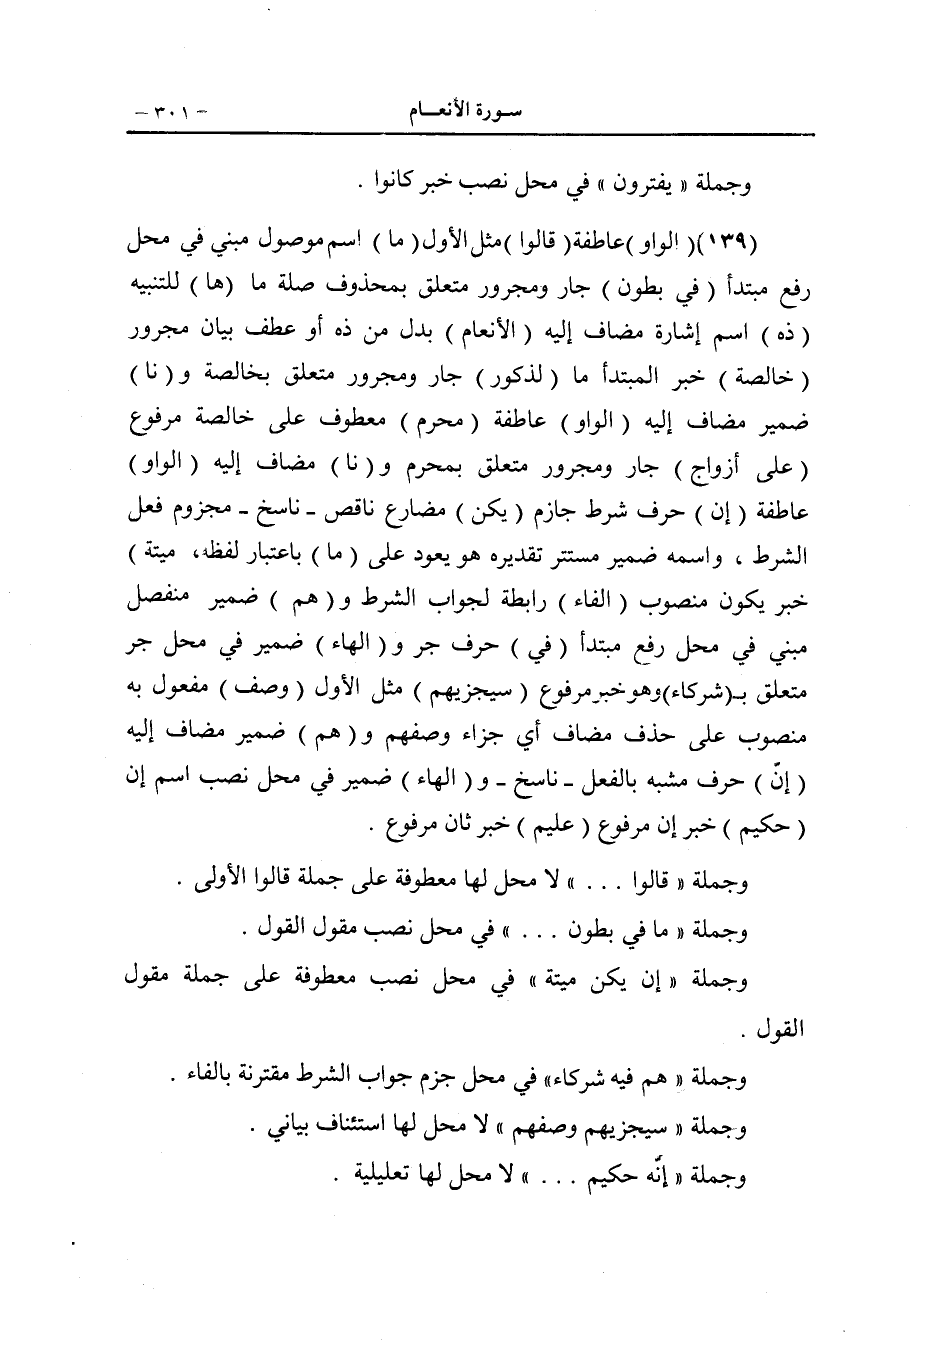 سورة الأنعام - ٣٠١ -
وجملة « يفترون » في محل نصب خبر كانوا .
(١٣٩)( الواو )عاطفة( قالوا )مثل الأول( ما ) اسم موصول مبني في محل
رفع مبتدأ ( في بطون ) جار ومجرور متعلق بمحذوف صلة ما (ها ) للتنبيه
( ذه ) اسم إشارة مضاف إليه ( الأنعام ) بدل من ذه أو عطف بيان مجرور
( خالصة ) خبر المبتدأ ما ( لذكور ) جار ومجرور متعلق بخالصة و( نا )
ضمير مضاف إليه ( الواو ) عاطفة ( محرم ) معطوف على خالصة مرفوع
( على أزواج ) جار ومجرور متعلق بمحرم و( نا ) مضاف إليه ( الواو )
عاطفة ( إن ) حرف شرط جازم ( يكن ) مضارع ناقص ـ ناسخ ـ مجزوم فعل
الشرط ، واسمه ضمير مستتر تقديره هو يعود على ( ما ) باعتبار لفظه، ميتة )
خبر يكون منصوب ( الفاء ) رابطة لجواب الشرط و( هم ) ضمير منفصل
مبني في محل رفع مبتدأ ( في ) حرف جر و( الهاء ) ضمير في محل جر
متعلق بـ(شركاء)وهو خبر مرفوع ( سيجزيهم ) مثل الأول ( وصف ) مفعول به
منصوب على حذف مضاف أي جزاء وصفهم و( هم ) ضمير مضاف إليه
( إنّ ) حرف مشبه بالفعل ـ ناسخ ـ و( الهاء ) ضمير في محل نصب اسم إن
( حكيم ) خبر إن مرفوع ( عليم ) خبر ثان مرفوع .
وجملة « قالوا . . . » لا محل لها معطوفة على جملة قالوا الأولى .
وجملة « ما في بطون . . . » في محل نصب مقول القول .
وجملة « إن يكن ميتة » في محل نصب معطوفة على جملة مقول
القول .
وجملة « هم فيه شركاء» في محل جزم جواب الشرط مقترنة بالفاء .
وجملة « سيجزيهم وصفهم » لا محل لها استئناف بياني .
وجملة « إنّه حكيم . . . » لا محل لها تعليلية .